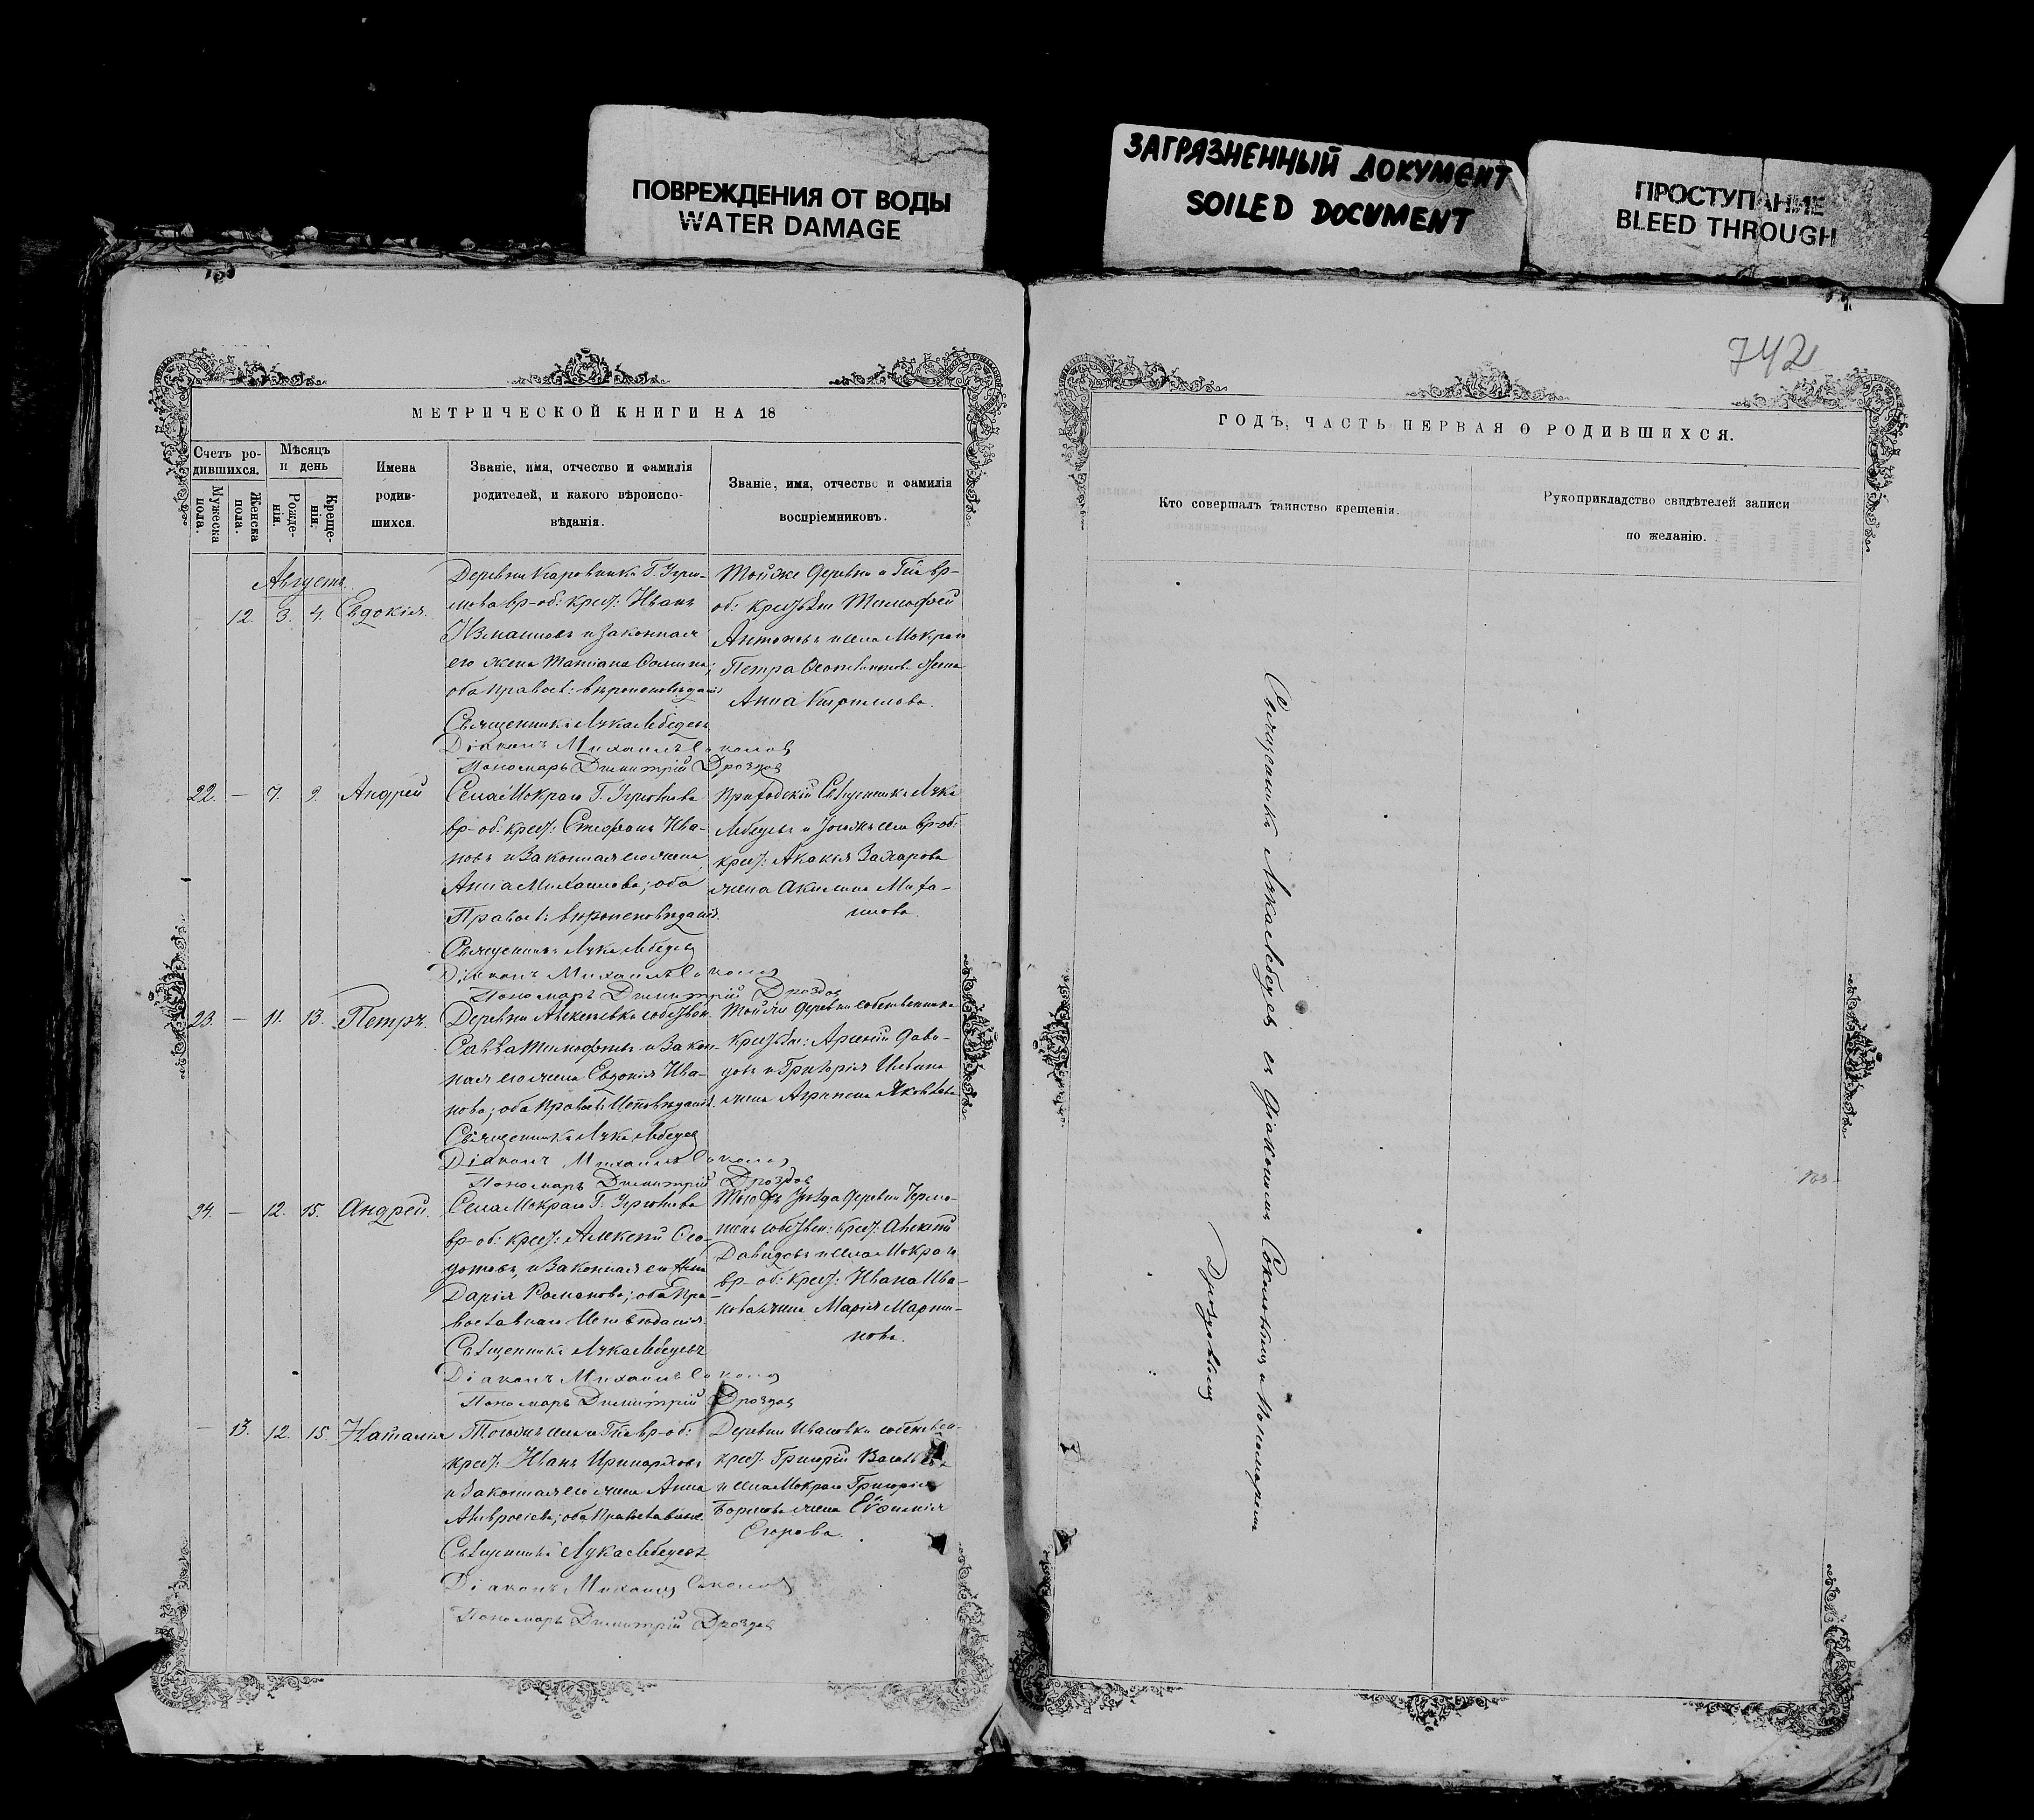 ПОВРЕЖДЕНИЯ ОТ ВОДЫ
WATER DAMAGE
ЗАГРЯЗНЕННЫЙ ДОКУМЕНТ
SOILED DOCUMENT
ПРОСТУПАНИЕ
BLEED THROUGH
742
МЕТРИЧЕСКОЙ КНИГИ НА 18
Счетъ ро-
дившихся.
Мужеска
пола.
Женска
пола.
Мѣсяцъ
и день
Рожде-
нія.
Креще-
нія.
Имена
родив-
шихся.
Званіе, имя, отчество и фамилія
родителей, и какого вѣроиспо-
вѣданія.
Званіе, имя, отчество и фамилія
воспріемниковъ.
Августъ
12. 3. 4. Евдокія.
Деревни
вр-об: крест: Иванъ
и законная
его жена Татіана Ѳомина;
оба правосл: вѣроисповѣданія
Священникъ Лука Лебедевъ
Діаконъ Михаилъ Соколов
Пономарь Димитрій Дроздов
Тойже деревни и Г-на вр-
об: Тимофей
Антоновъ и села Мокраго
Петра жена
Анна Кирилова.
22. — 7. 9. Андрей
Села Мокраго Г.
вр-об: крест: Стефанъ Ива-
новъ и законная его жена
Анна Михаилова; оба
Правосл: вѣроисповѣданія.
Священникъ Лука Лебедев
Діаконъ Михаилъ Соколов
Пономарь Димитрій Дроздов
Приходскій Священникъ Лука
Лебедевъ и тогожъ села вр-об:
крест: Акакія Захарова
жена Акилина Миха-
илова.
23. — 11. 13. Петръ.
Деревни Алексеевки собствен.
Савва Тимофѣевъ и закон-
ная его жена Евдокія Ива-
нова; оба правосл: исповѣданія.
Священникъ Лука Лебедев
Діаконъ Михаилъ Соколов
Пономарь Димитрій Дроздов
Тойже деревни собственника
Арсеній Дави-
довъ и Григорія Ильина
жена Агрипена Яковлева
24. — 12. 15. Андрей.
Села Мокраго Г.
вр-об: крест: Алексѣй Ѳео-
дотовъ, и законная его жена
Дарія Романова; оба Пра-
вославнаго Исповѣданія.
Священникъ Лука Лебедевъ
Діаконъ Михаилъ Соколов
Пономарь Димитрій Дроздов
Тогожъ уѣзда деревни
собствен: крест: Алексѣй
Давидовъ и села Мокраго
вр-об: крест: Ивана Ива-
нова жена Марія Марти-
нова.
— 13. 12. 15. Наталія
Тогожъ села и Г-на вр-об:
крест: Иванъ
и законная его жена Анна
Амвросіева; оба православные.
Священникъ Лука Лебедевъ
Діаконъ Михаилъ Соколов
Пономарь Димитрій Дроздов
Деревни Ивановки собствен.
крест: Григорій
и села Мокраго Григорія
Борисова жена Евѳимія
Егорова.
ГОДЪ, ЧАСТЬ ПЕРВАЯ О РОДИВШИХСЯ.
Кто совершалъ таинство крещенія.
Рукоприкладство свидѣтелей записи
по желанію.
Священникъ Лука Лебедев съ діакономъ Соколовымъ и Пономаремъ
Дроздовымъ